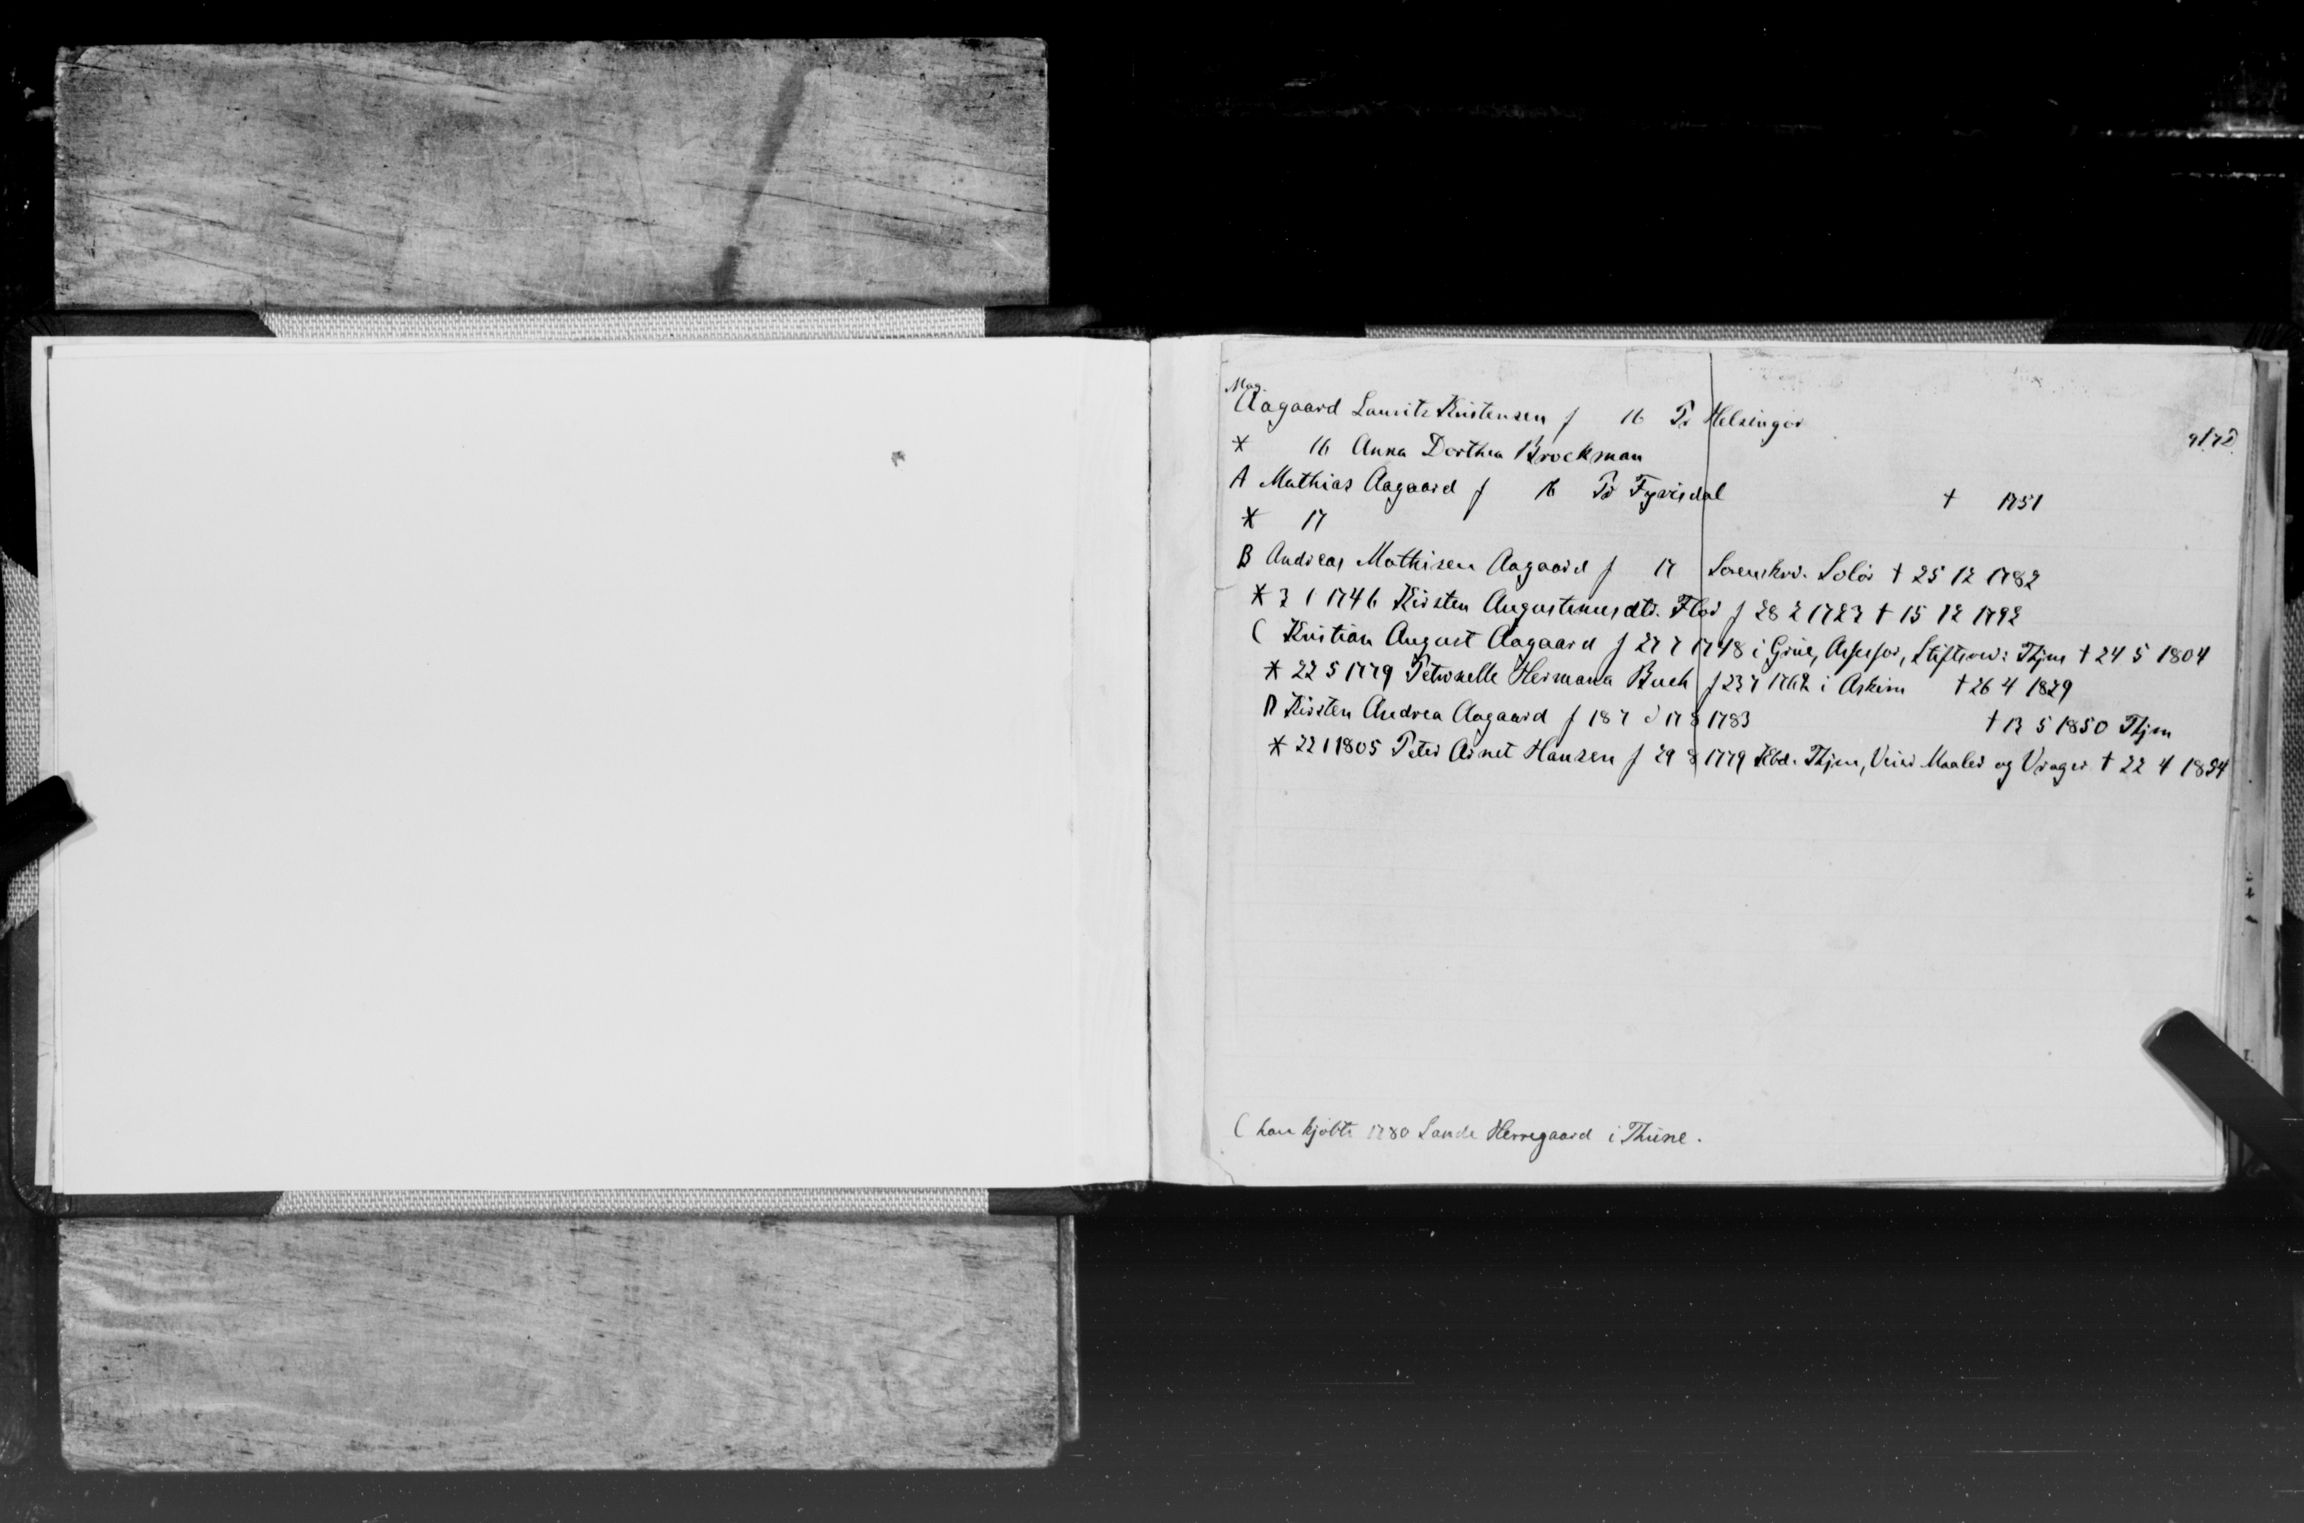 Mag.
Aagaard Lauritz Kristensen f 16 Pr Helsingør
* 16 Anna Dorthea Brockman
A Mathias Aagaard f 16 Pr Fyrisdal † 1751
* 17
B Andreas Mathisen Aagaard f 17 Sorenskr. Solør † 25 12 1782
* 3 1 1746 Kirsten Augustinusdtr. Flor f 28 2 1723 † 15 12 1792
C Kristian August Aagaard f 27 7 1748 i Grue, Assessor, Stiftsov: Thjm † 24 5 1804
* 22 5 1779 Petronelle Hermana Buch f 23 7 1762 i Askim † 26 4 1829
D Kirsten Andrea Aagaard f 18 7 d 17 8 1783 † 13 5 1850 Thjm
* 22 1 1805 Peter Arnet Hansen f 29 8 1779 Kbd. Thjm, Veier Maaler og Vrager † 22 4 1854
C han kjøbte 1780 Sande Herregaard i Thune.